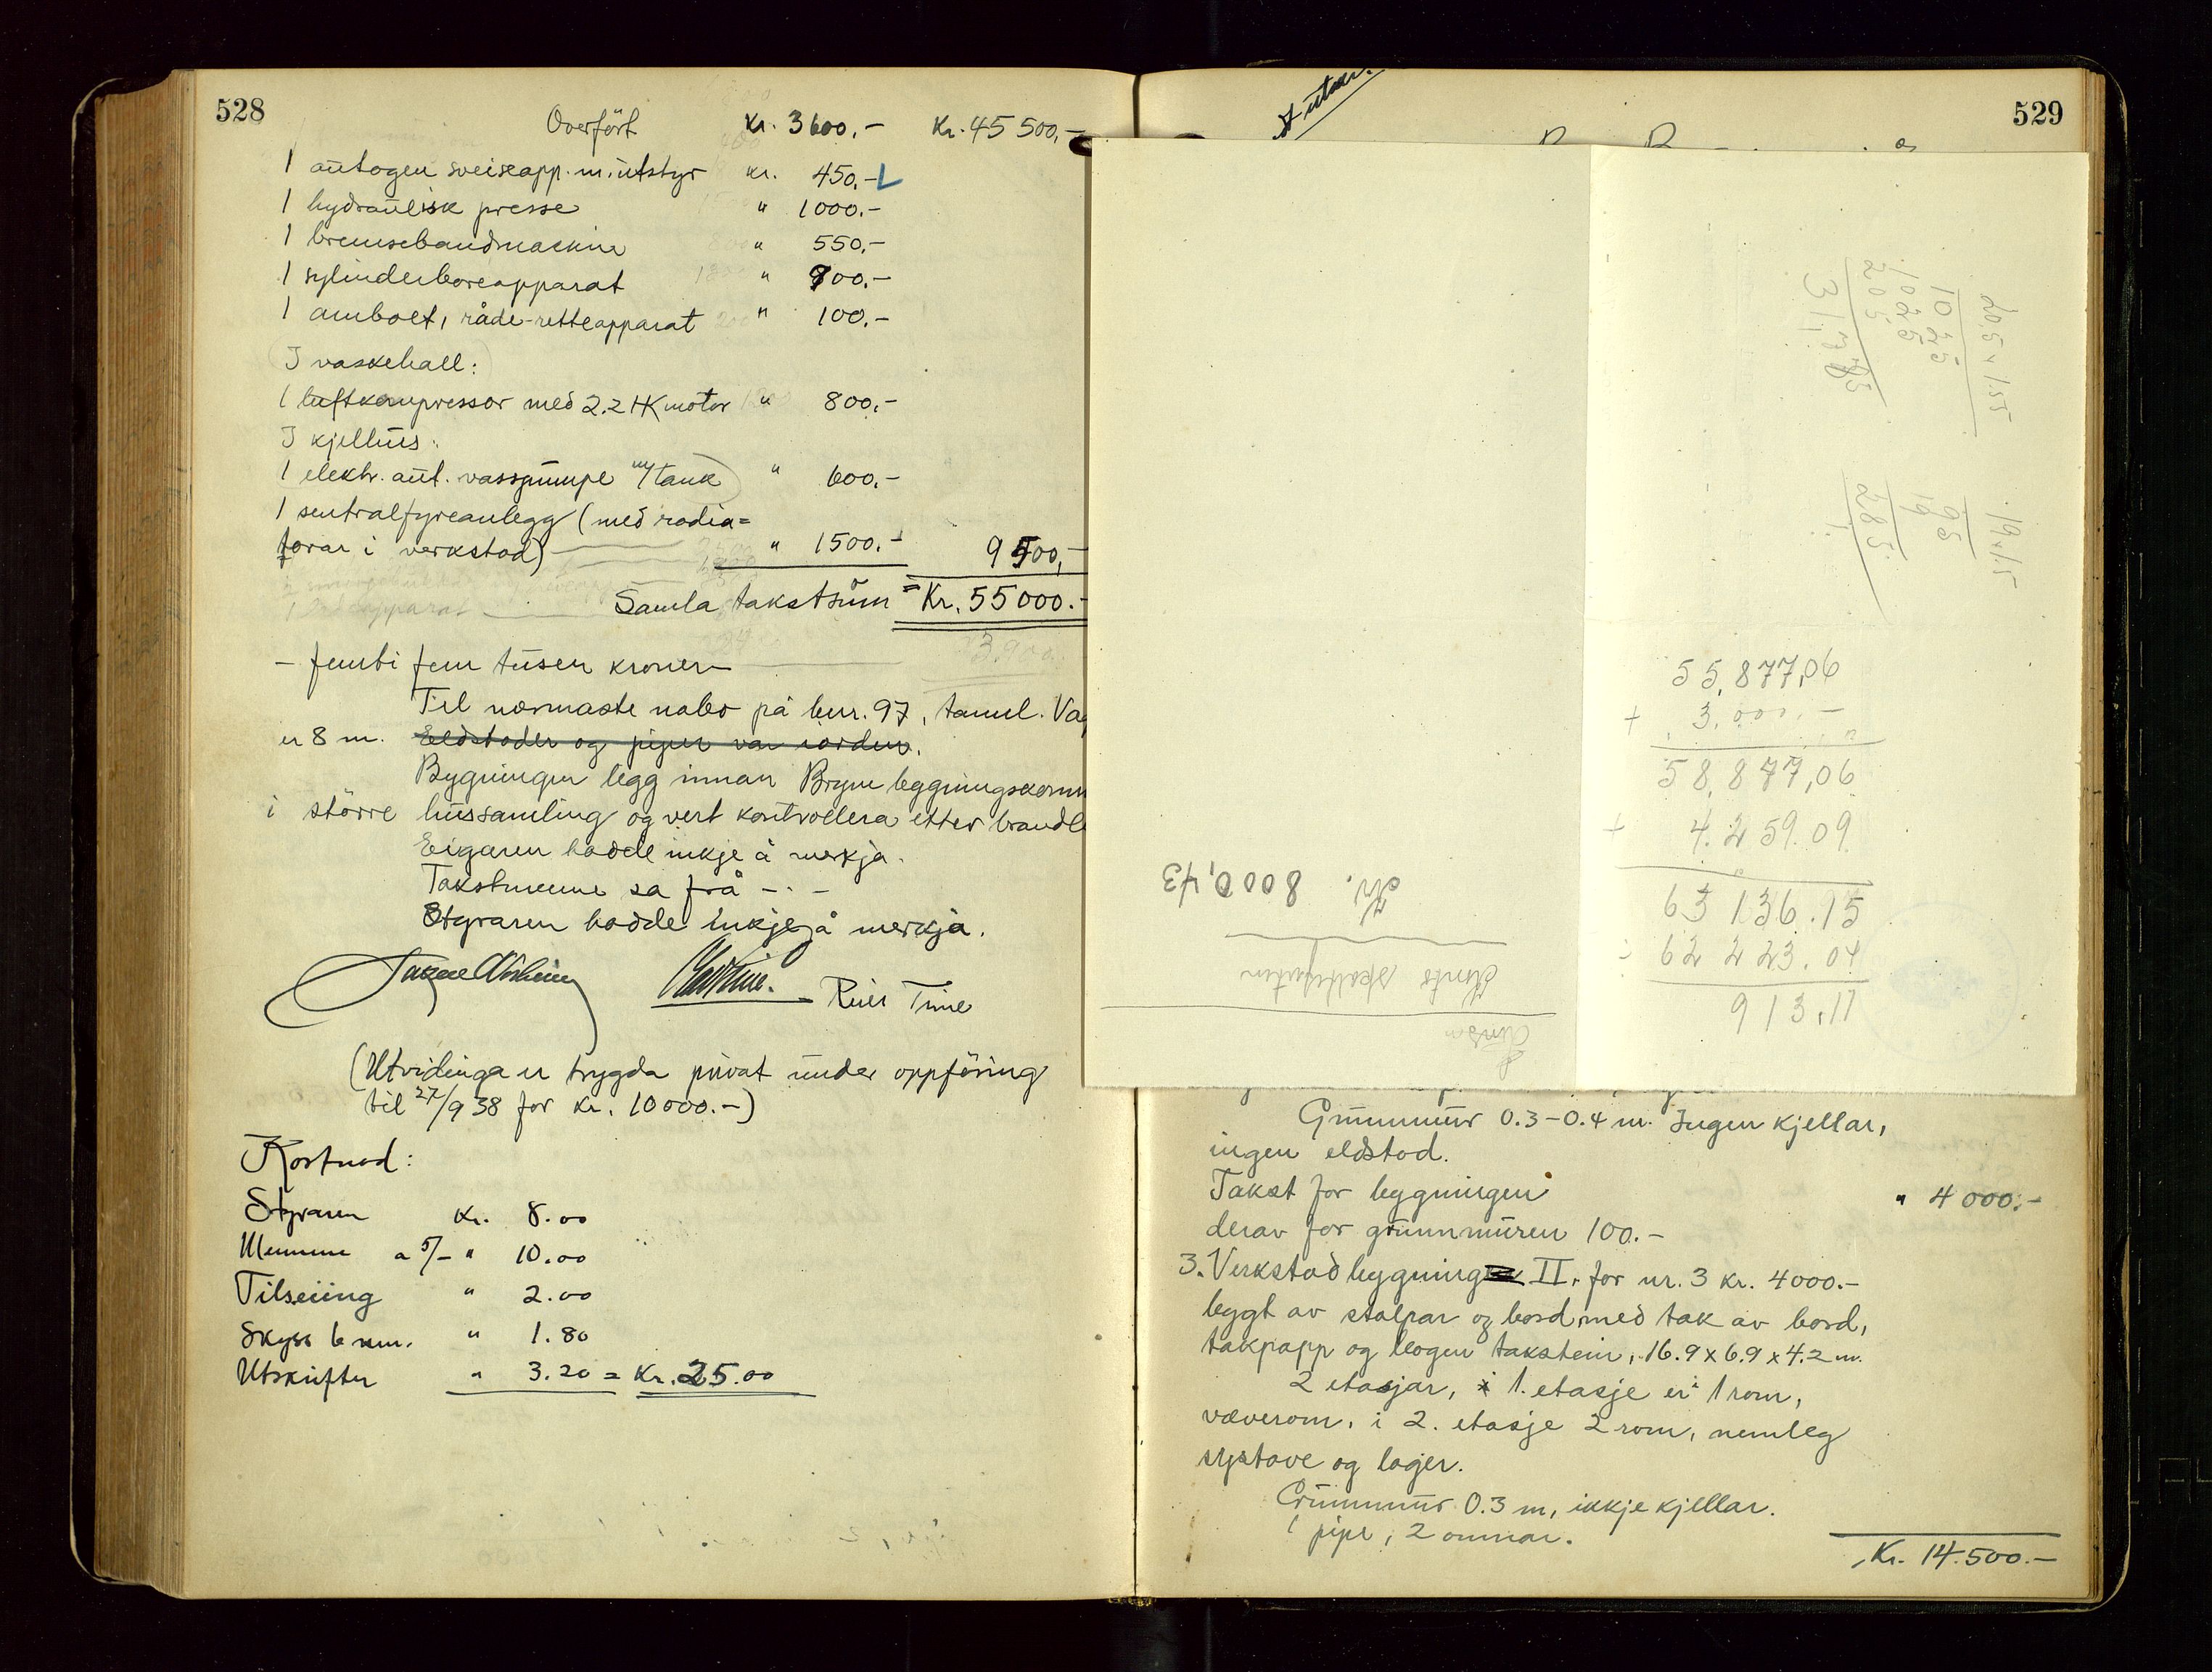 528
Overfört Kr. 3600.- Kr. 45 500.-
1 autogen sveiseapp. m. utstyr kr. 450.-
1 hydraulisk presse " 1000.-
1 bremsebandmaskin " 550.-
1 sylinderboreapparat " 900.-
1 ambolt, råde-retteapparat " 100.-
I vaskehall:
1 luftkompressor med 2.2 HK motor " 800.-
I kjellhus:
1 elektr. aut. vasspumpe m/tank " 600.-
1 sentralfyreanlegg (med radia=
torar i verkstad) " 1500.- 9500.-
Samla takstsum = Kr. 55000.-
- femti fem tusen kroner -
Til nærmaste nabo på bnr. 97, tannl.
er 8 m. Eldstader og piper var i orden.
Bygningen ligg innan Bryne bygningskomm
i större hussamling og vert kontrollera etter brandl
Eigaren hadde inkje å merkja.
Takstmennene sa frå - . -
Styraren hadde inkje å merkja.
Reier Time
(Utvidinga er trygda privat under oppföring
til 27/9 38 for kr. 10000.-)
Kostnad:
Styraren Kr. 8.00
Mennene a 5/- " 10.00
Tilseiing " 2.00
Skyss 6 km. " 1.80
Utskrifter " 3.20 = Kr. 25.00
529
20,5 x 1.55
1025
1025
205
19 x 1.5
95
19
285
55,877,06
+ 3.000.-
58,877,06
+ 4.259.09
63 136.15
÷ 62 223.04
913.11
Kr. 8000,43
Grunnmur 0.3-0.4 m. Ingen kjellar,
ingen eldstad.
Takst for bygningen " 4000.-
derav for grunnmuren 100.-
3. Verkstadbygning II, for nr. 3 kr. 4000.-
bygt av stolpar og bord med tak av bord,
takpapp og logen takstein, 16.9 x 6.9 x 4.2 m.
2 etasjar, i 1. etasje er 1 rom,
væverom, i 2. etasje 2 rom, nemleg
systove og lager.
Grunnmur 0.3 m, ikkje kjellar.
1 pipe, 2 omnar.
Kr. 14.500.-